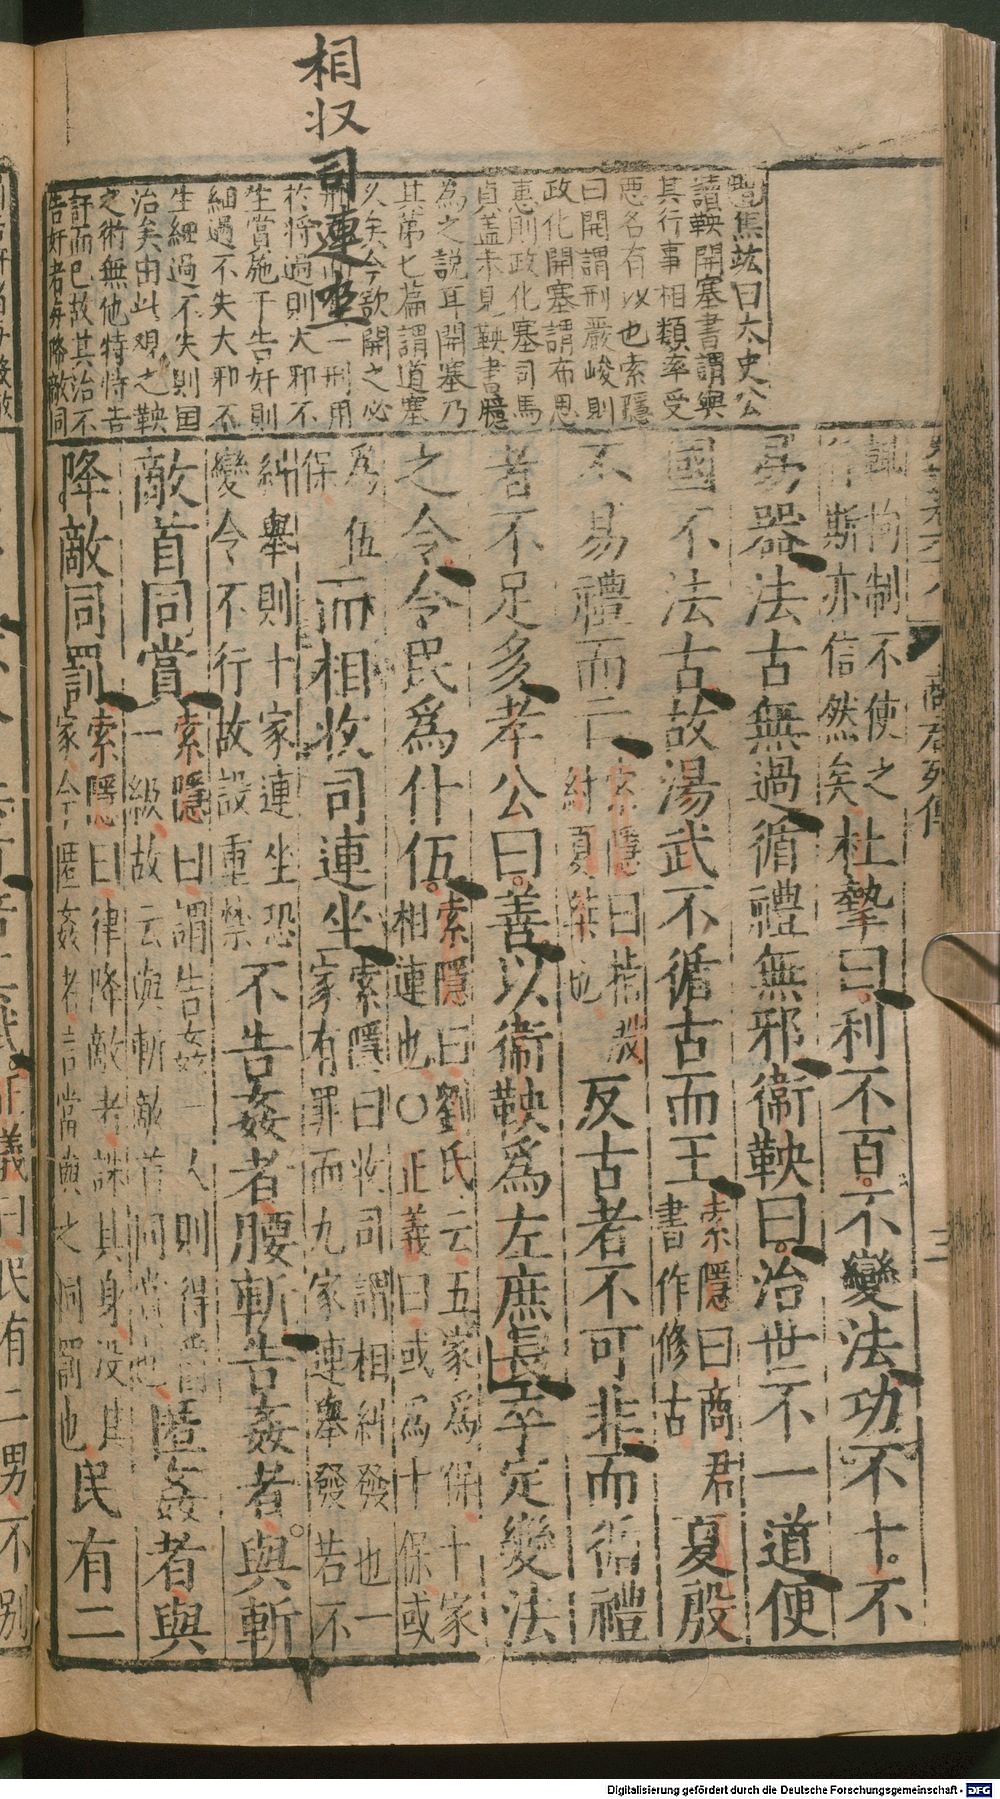 相収司連坐
愷焦竑曰太史公
讀鞅開塞書謂與
其行事相類卒受
惡各有以也索隱
曰開謂刑嚴峻則
政化開塞謂布恩
惠則政化塞司馬
貞蓋未見鞅書臆
為之説耳開塞乃
其第七篇謂道塞
久矣今欲開之必
刑用
於將過則大邪不
生賞施于告奸則
細過不失大邪不
生細過不失則国
治矣由此觀之鞅
之術無他特恃告
訐而已故其治不
告奸者與降敵同
商君列傳
三
拘制不使之
斯亦信然矣
杜摯曰利不百不變法功不十不
易器法古無過循禮無邪衞鞅曰治世不一道便
國不法古故湯武不循古而王
索隱曰商君
書作修古
夏殷
不易禮而亡
索隱曰指殷
紂夏桀也
反古者不可非而循禮
者不足多孝公曰善以衞鞅爲左庶長卒定變法
之令令民爲什伍
索隱曰劉氏云五家爲保十家
相連也○正義曰或爲十保或
爲伍
保
而相收司連坐
索隱曰收司謂相糾發也一
家有罪而九家連舉發若不
糾舉則十家連坐恐
變令不行故設重禁
不告姦者腰斬告姦者與斬
敵首同賞
索隱曰謂告姦一人則得爵
一級故云與斬敵首同賞也
匿姦者與
降敵同罰
索隱曰律降敵者誅其身沒其
家今匿姦者言當與之同罰也
民有二
正義曰民有二男不別
Digitalisierung gefördert durch die Deutsche Forschungsgemeinschaft - DFG